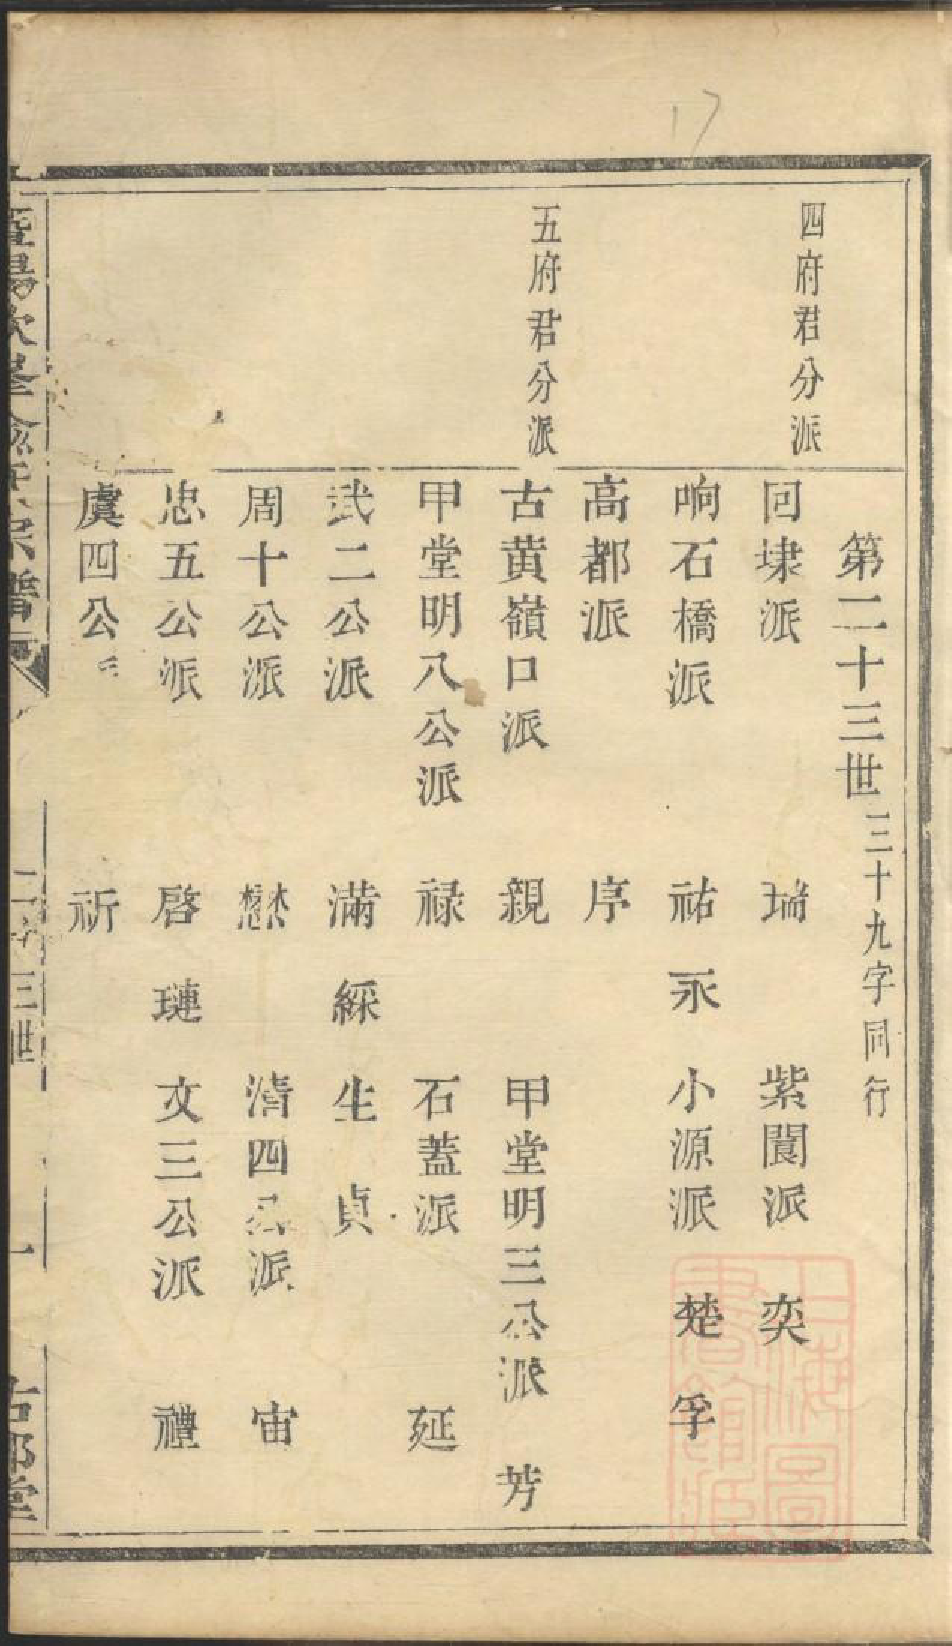 17
第二十三世三十九字同行
四府君分派
回埭派 瑞 紫閬派 奕
响石橋派 祐 永 小源派 楚 孚
高都派 序
五府君分派
古黄嶺口派 親 甲堂明三公派 芳
甲堂明八公派 禄 石蓋派 延
武二公派 滿 綵 生 貞
周十公派 懋 清四公派 宙
忠五公派 啓 璉 文三公派 禮
虞四公 祈
暨陽次峯俞氏宗譜
二十三世
一
古郡堂
上海圖書館藏